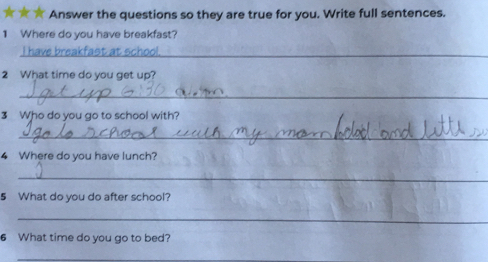 ★★★ Answer the questions so they are true for you. Write full sentences.
1 Where do you have breakfast?
I have breakfast at school.
2 What time do you get up?
I get up 6:30 a.m
3 Who do you go to school with?
I go to school with my mom, dad and
4 Where do you have lunch?
5 What do you do after school?
6 What time do you go to bed?